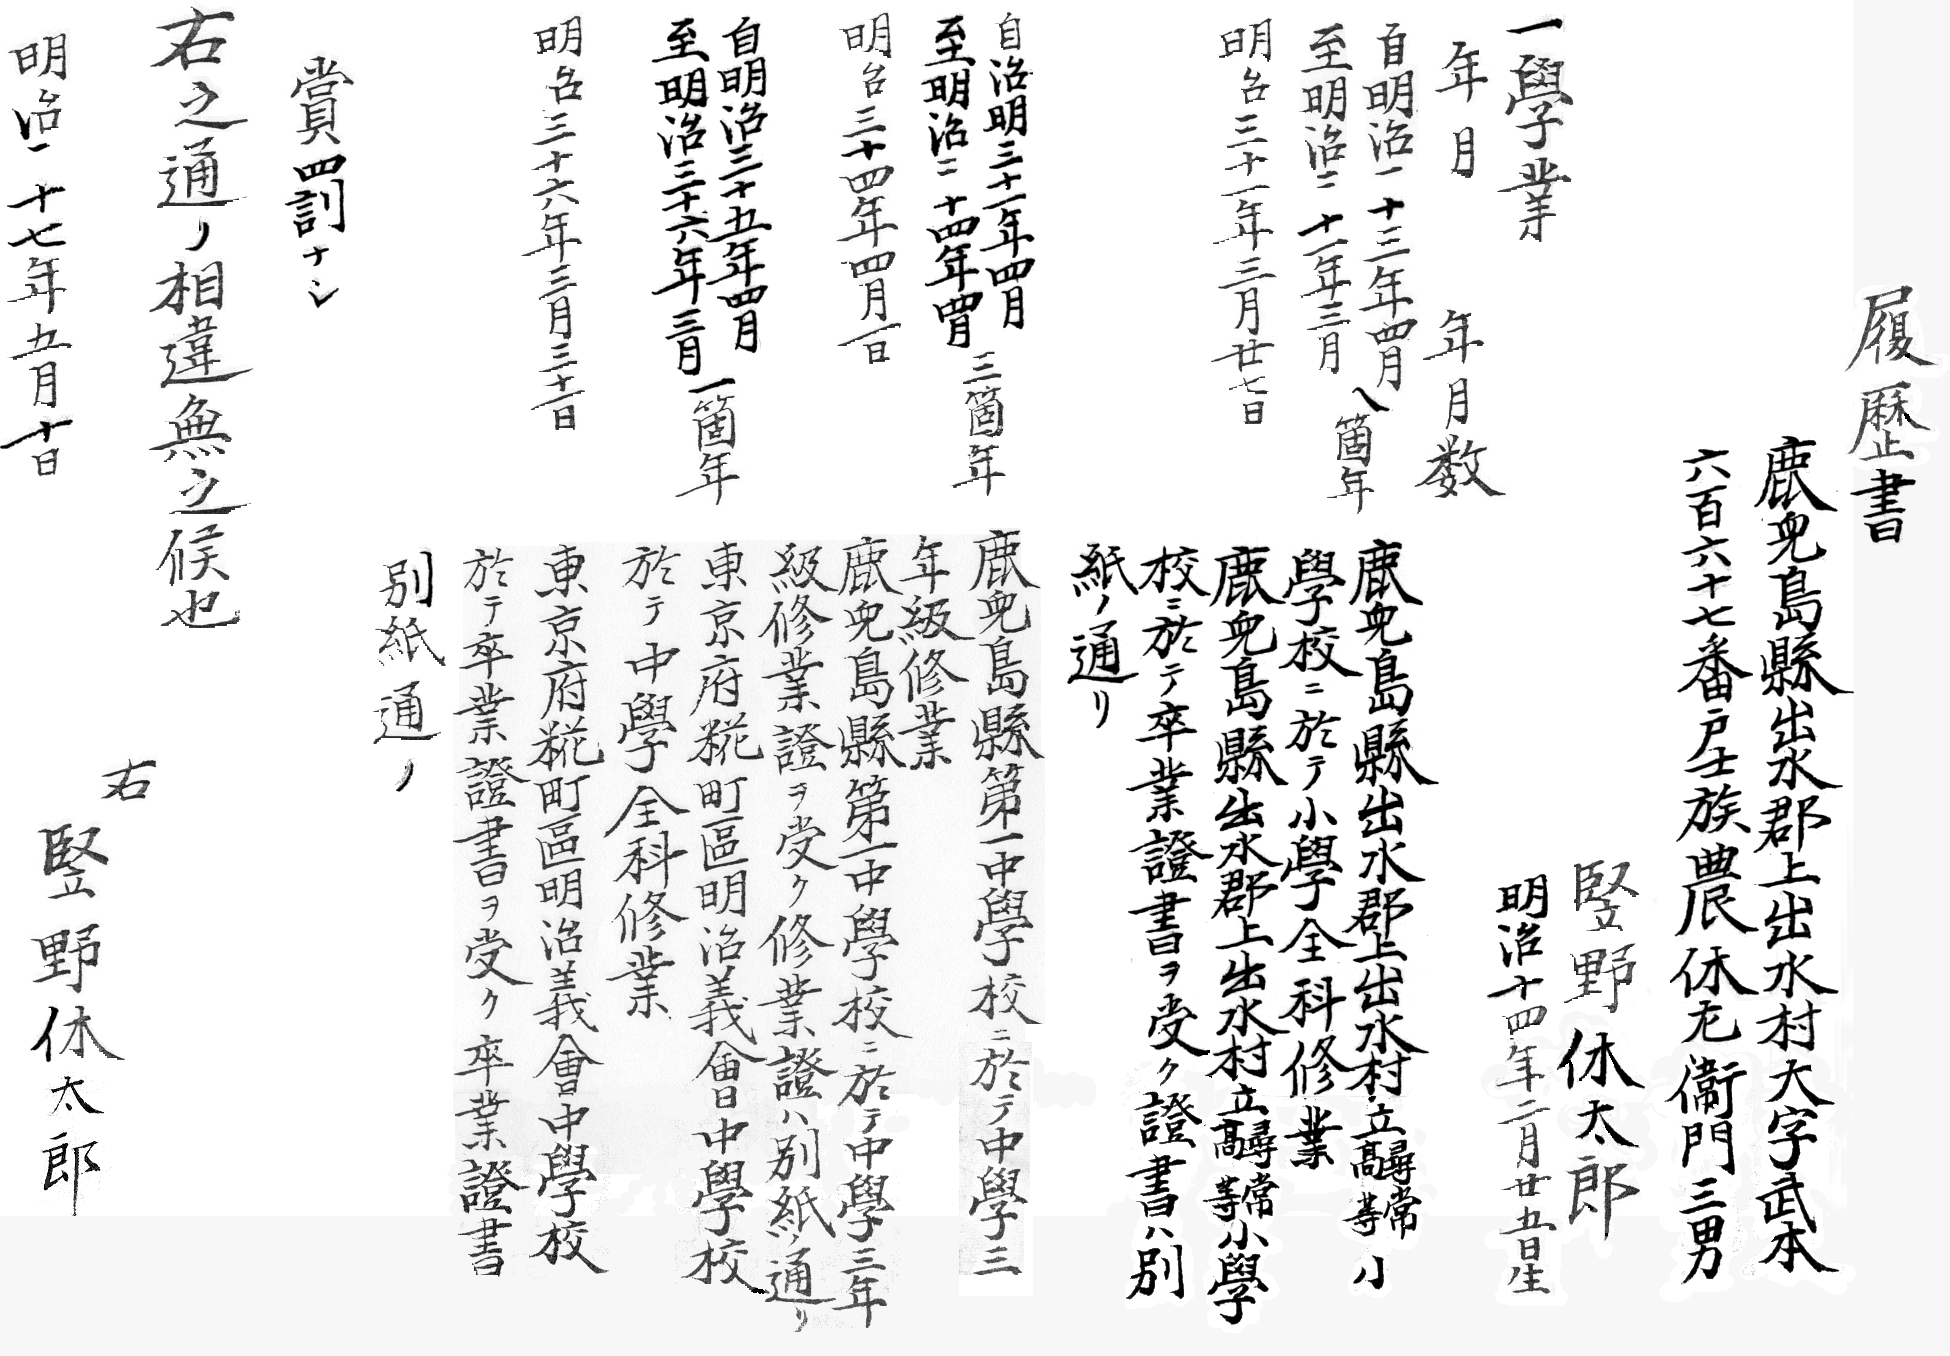 履歴書
鹿兒島縣出水郡上出水村大字武本
六百六十七番戸士族農休左衞門三男
竪野休太郎
明治十四年二月廿五日生
一學業
年月 年月数
自明治二十三年四月
至明治三十一年三月
八箇年
鹿兒島縣出水郡上出水村立尋常高等小
學校ニ於テ小學全科修業
明治三十一年三月廿七日
鹿兒島縣出水郡上出水村立尋常高等小學
校ニ於テ卒業證書ヲ受ク證書ハ別
紙ノ通リ
自治明三十一年四月
至明治三十四年四月
三箇年
鹿兒島縣第一中學校ニ於テ中學三
年級修業
明治三十四年四月一日
鹿兒島縣第一中學校ニ於テ中學三年
級修業證ヲ受ク修業證ハ別紙ノ通リ
自明治三十五年四月
至明治三十六年三月
一箇年
東京府糀町區明治義會中學校
於テ中學全科修業
明治三十六年三月三十一日
東京府糀町區明治義會中學校
於テ卒業證書ヲ受ク卒業證書
別紙通ノ
賞罰ナシ
右之通リ相違無之候也
明治二十七年五月十日
右
竪野休太郎